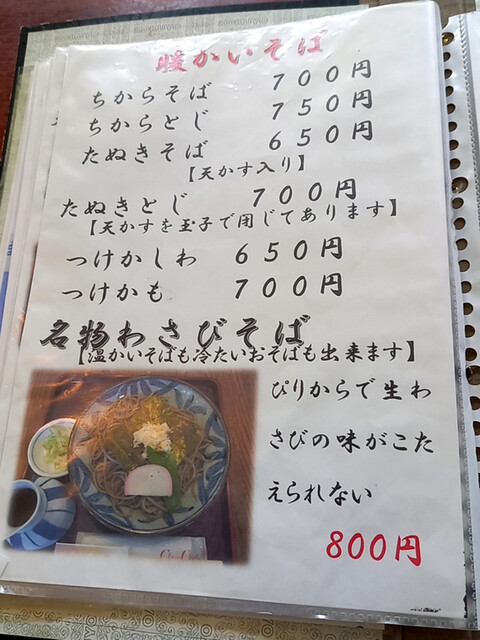 暖かいそば
ちからそば 700円
ちからとじ 750円
たぬきそば 650円
【天かす入り】
たぬきとじ 700円
【天かすを玉子で閉じてあります】
つけかしわ 650円
つけかも 700円
名物わさびそば
【温かいそばも冷たいおそばも出来ます】
ぴりからで生わ
さびの味がこた
えられない
800円